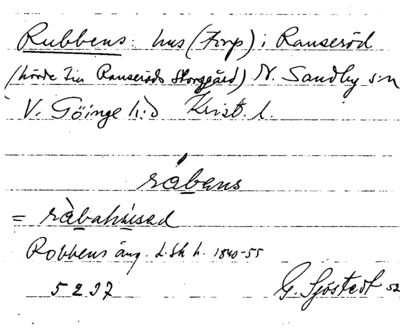 Rubbens: hus (torp) i Ranseröd
(hörde till Ranseröds Storegård) N. Sandby sn
V. Göinge h:d Krist. l.
råbans
= råbahúsad
Robbens äng. L.Sk h. 1840-55
5 2.37 G. Sjöstedt 52